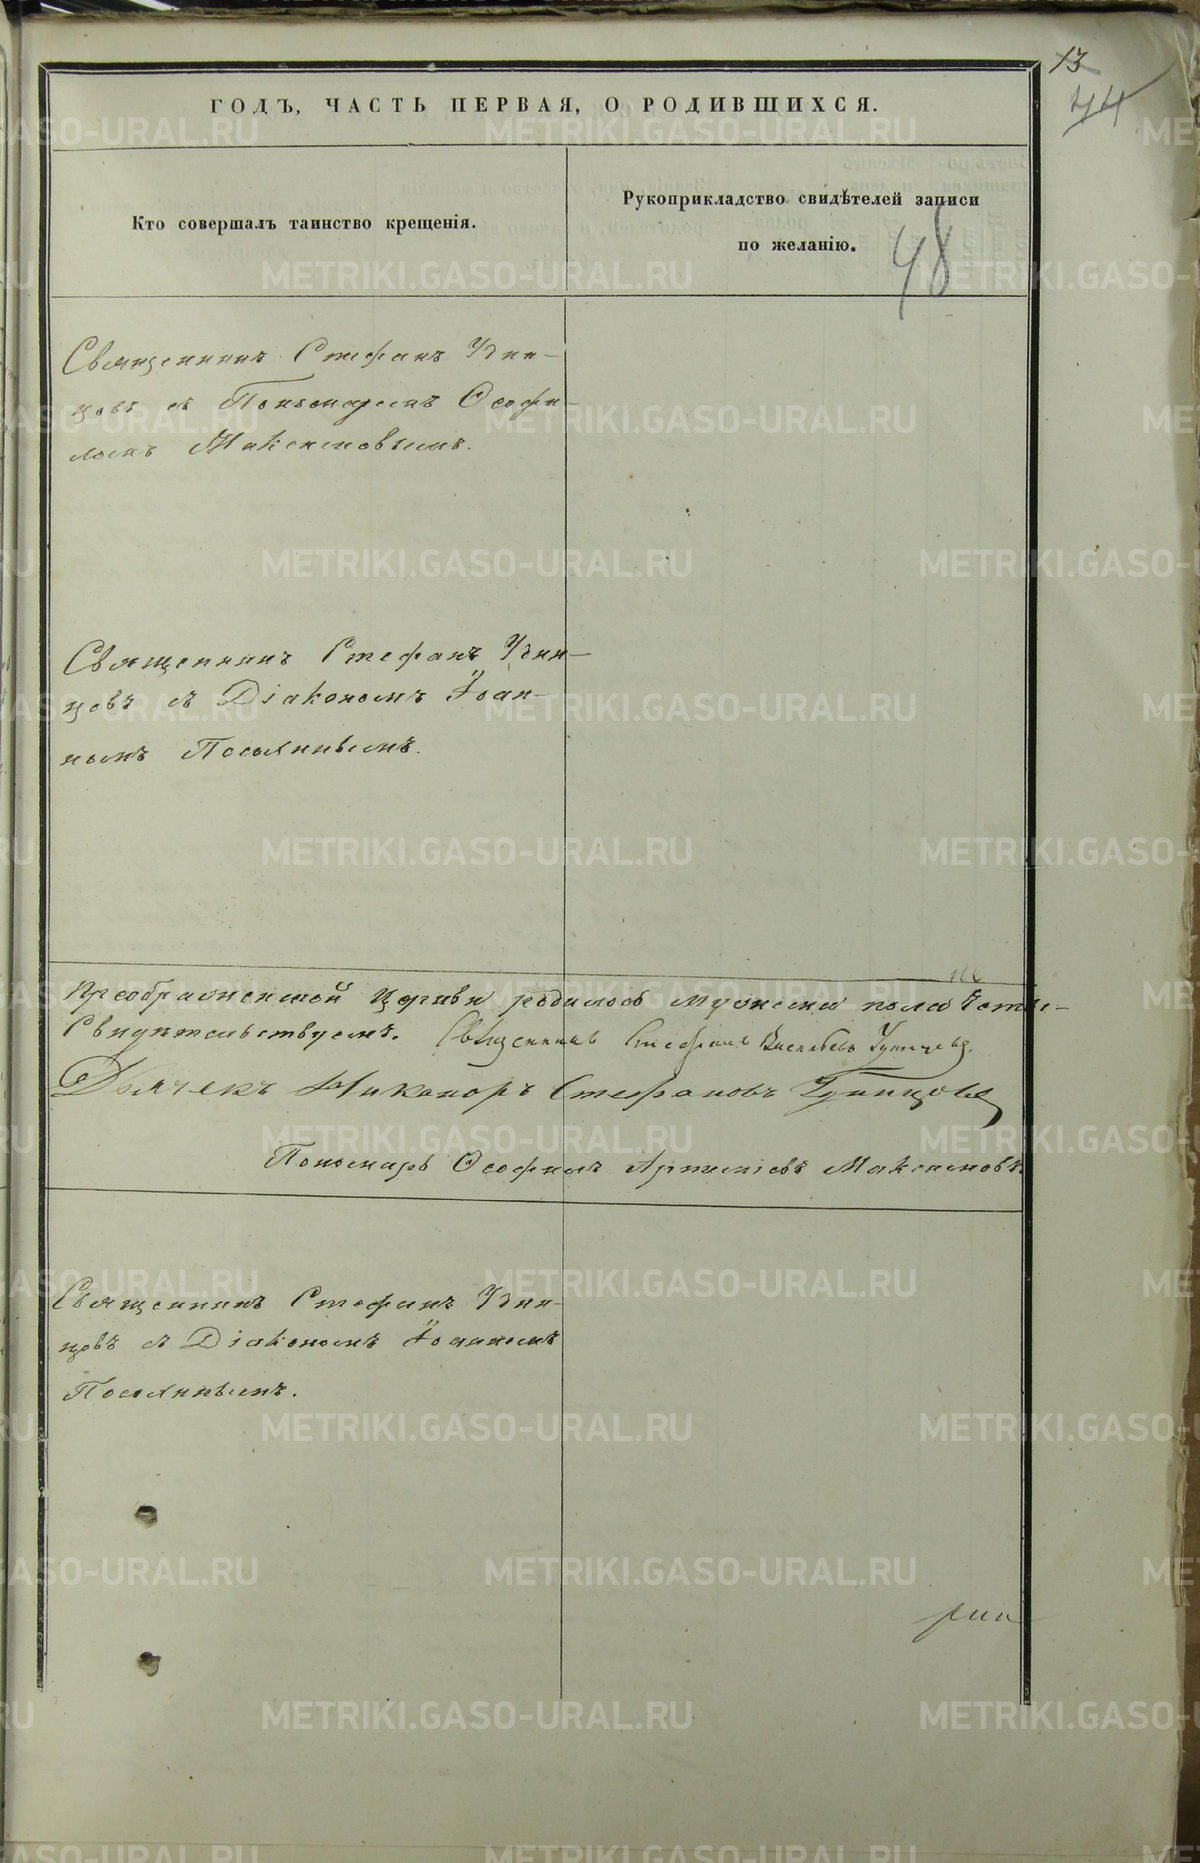 13
44
ГОДЪ, ЧАСТЬ ПЕРВАЯ, О РОДИВШИХСЯ.
Кто совершалъ таинство крещенія.
Рукоприкладство свидѣтелей записи
по желанію.
48
Священникъ Стефанъ
цовъ съ Пономаремъ Ѳеофи-
ломъ Максимовымъ.
Священникъ Стефанъ
цовъ съ Діакономъ Іоан-
номъ
Преображенской Церкви родилось мужеска пола
Свидѣтельствуемъ. Священникъ Стефанъ Васильевъ
Дьячекъ Никаноръ Стефановъ
Пономарь Ѳеофилъ Артеміевъ Максимовъ
Священникъ Стефанъ
цовъ съ Діакономъ Іоанномъ
METRIKI.GASO-URAL.RU